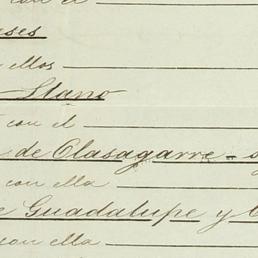 con el
ellos
Llano
con el
de Olasagarre = a
con ella
Guadalupe y
con ella